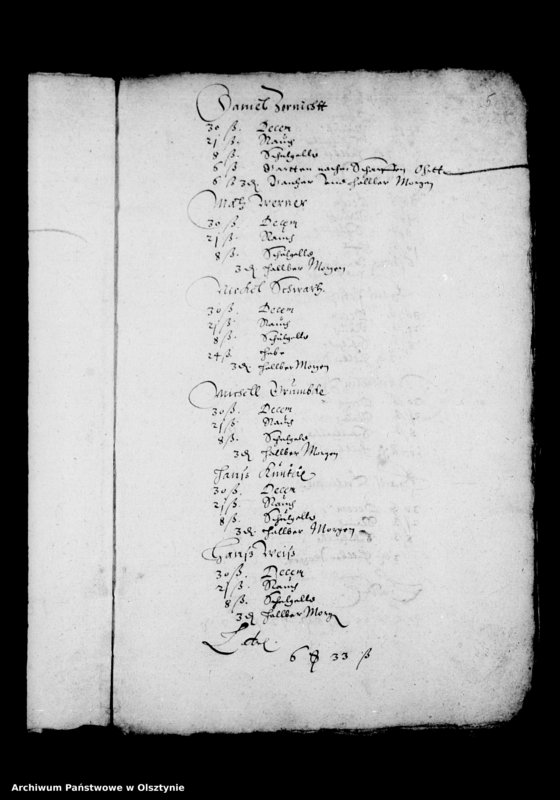 5
Daniel
30 ß. Decem
21 ß. Rauch
8 ß. Schulgeltt
6 ß.
6 ß 3 ₰ halber Morgen
Matz Werner
30 ß. Decem
21 ß. Rauch
8 ß. Schulgeltt
3 ₰ halber Morgen
Michel Schwartz
30 ß. Decem
21 ß. Rauch
8 ß. Schulgeltt
24 ß hube
3 ₰ halber Morgen
Michell
30 ß. Decem
21 ß. Rauch
8 ß. Schulgelt
3 ₰ halber Morgen
Hanß
30 ß. Decem
21 ß. Rauch
8 ß. Schulgeltt
3 ₰ halber Morgen
Hanß Weiß
30 ß. Decem
21 ß. Rauch
8 ß. Schulgeltt
3 ₰ halber Morgen
Late
6 33 ß
Archiwum Państwowe w Olsztynie